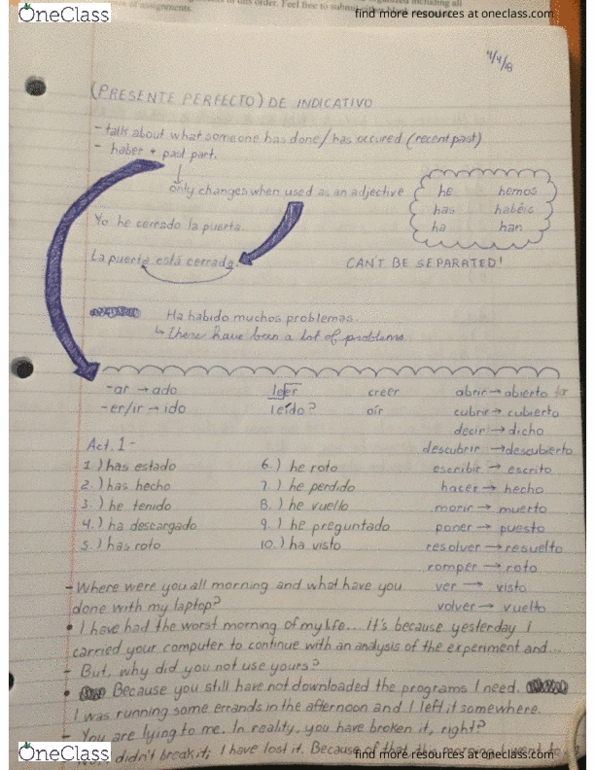 OneClass
find more resources at oneclass.com
4/4/8
(PRESENTE PERFECTO) DE INDICATIVO
- talk about what someone has done/has occured (recent past)
- haber + past part.
only changes when used as an adjective
he hemos
has habéis
ha han
Yo he cerrado la puerta.
La puerta está cerrada.
CAN'T BE SEPARATED!
Ha habido muchos problemas.
There have been a lot of problems.
-ar → ado leer creer abrir → abierto
-er/ir → ido leído? oír cubrir → cubierto
decir → dicho
Act. 1- descubrir → descubierto
1.) has estado 6.) he roto escribir → escrito
2.) has hecho 7.) he perdido hacer → hecho
3.) he tenido 8.) he vuelto morir → muerto
4.) ha descargado 9.) he preguntado poner → puesto
5.) has roto 10.) ha visto resolver → resuelto
romper → roto
- Where were you all morning and what have you ver → visto
done with my laptop? volver → vuelto
• I have had the worst morning of my life... It's because yesterday I
carried your computer to continue with an analysis of the experiment and...
- But, why did you not use yours?
• Because you still have not downloaded the programs I need.
I was running some errands in the afternoon and I left it somewhere.
- You are lying to me. In reality, you have broken it, right?
didn't break it; I have lost it. Because of that the morning I went to
OneClass
find more resources at oneclass.com